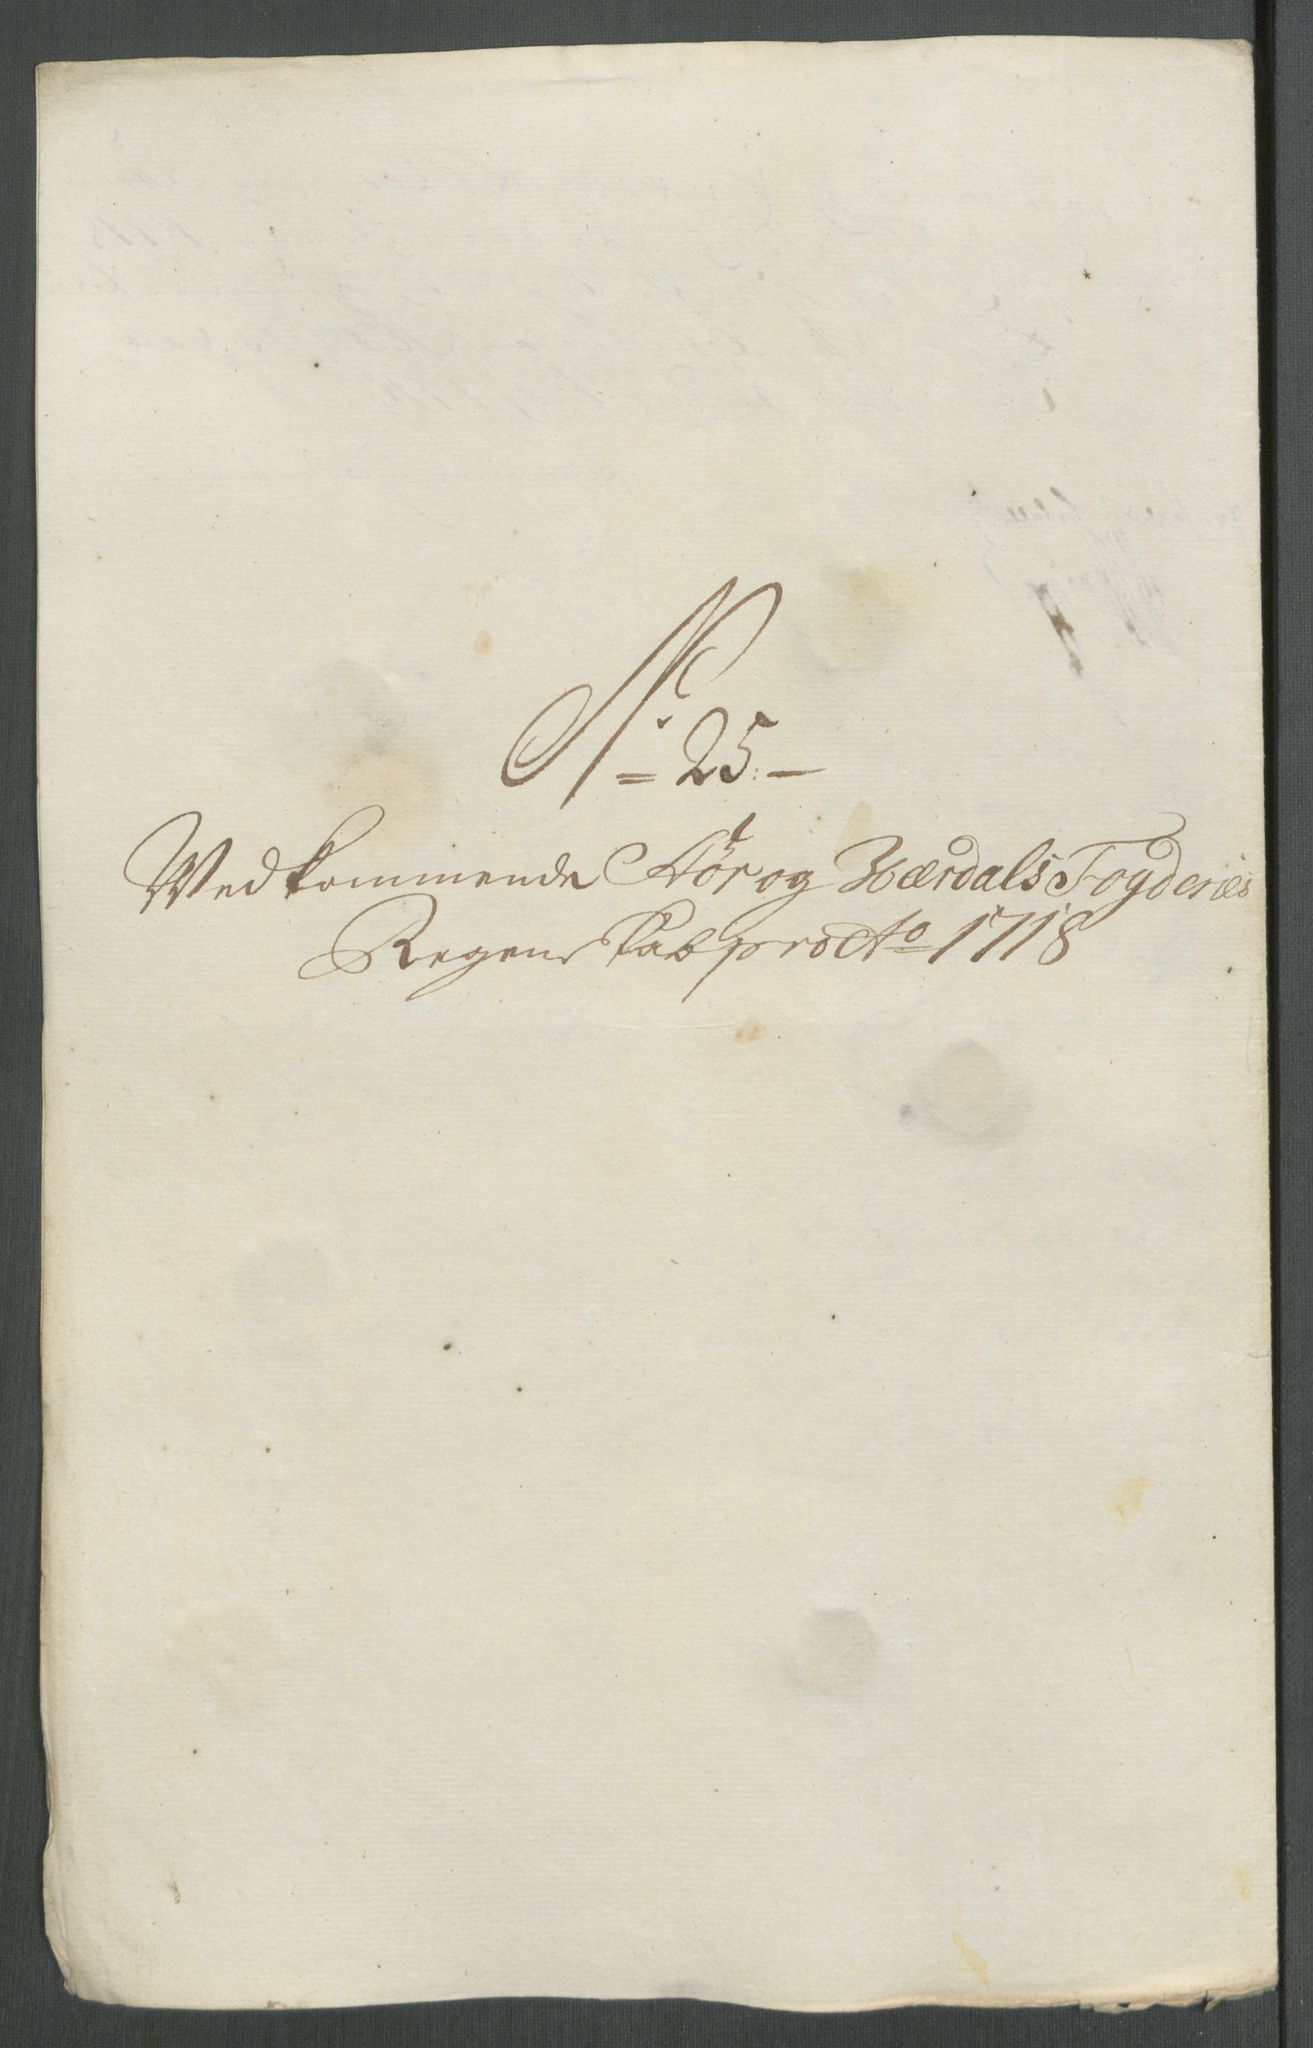 No 25
Vedkommende Stør og Værdals Fogderies
Regenskab pro Ao 1718